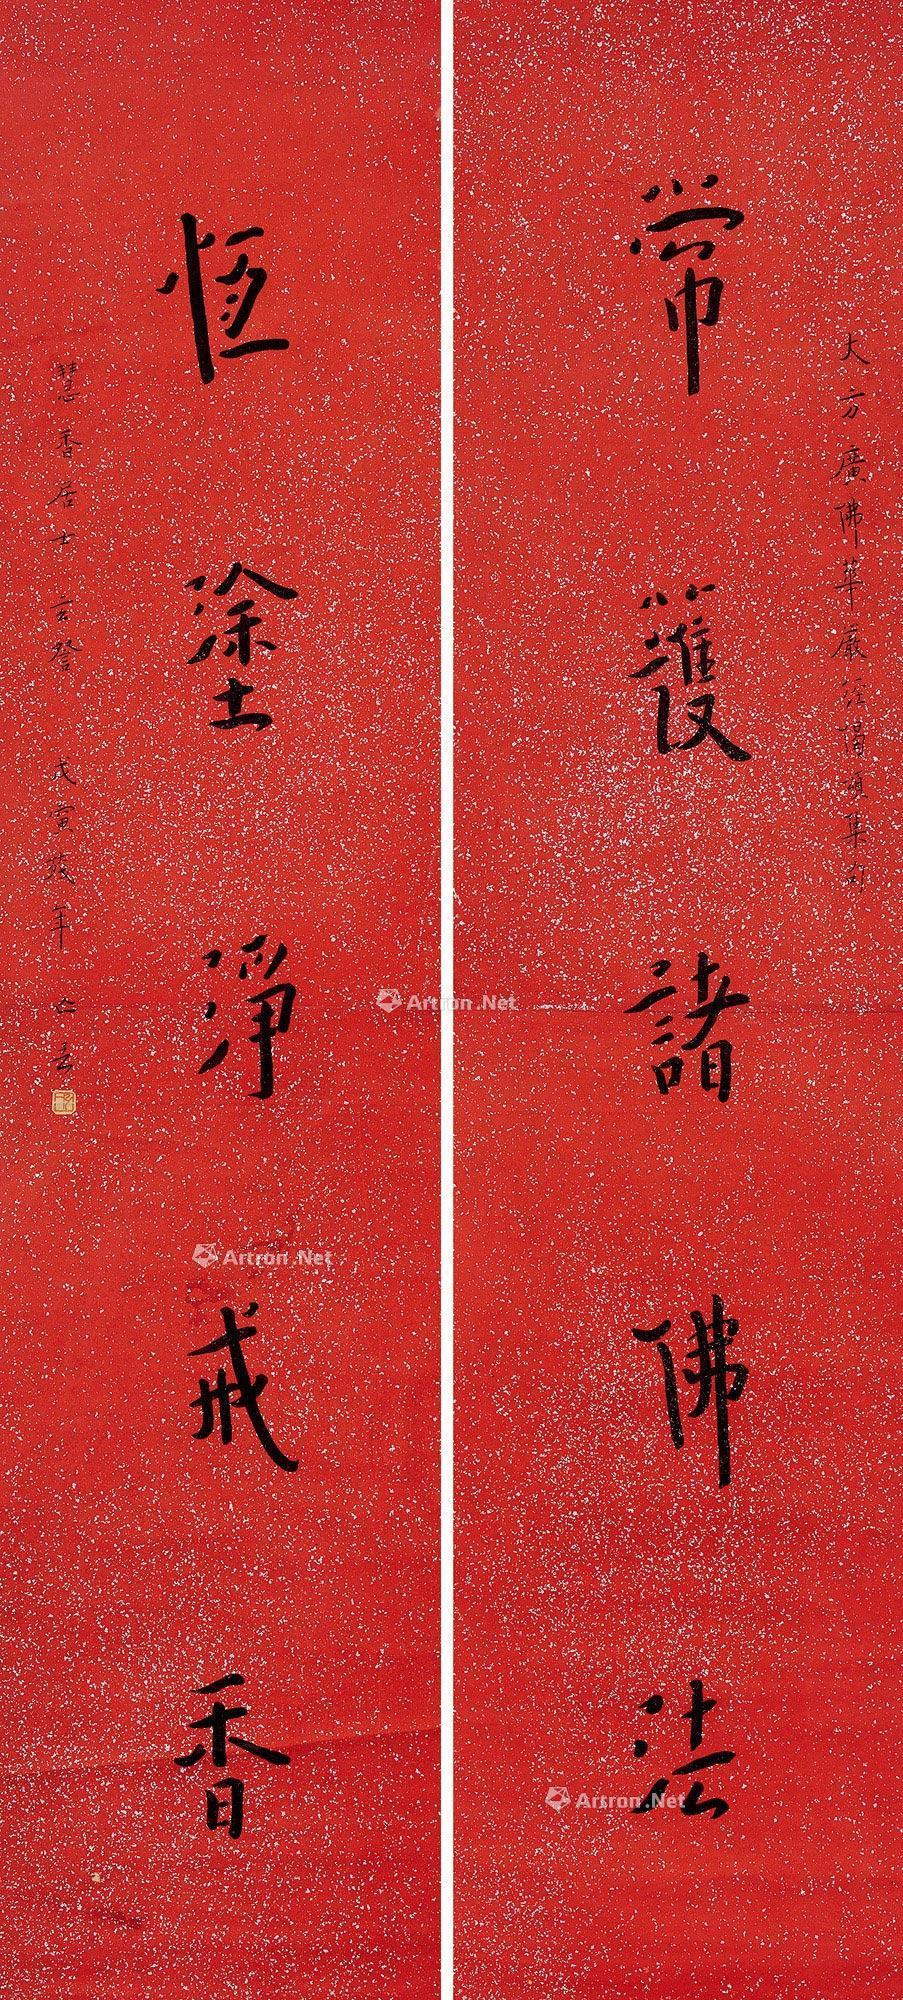 大方廣佛華嚴經偈頌集句
常護諸佛法
恆塗淨戒香
慧香居士玄詧 戊寅殘年 亡言
Artron.Net
Artron.Net
Artron.Net